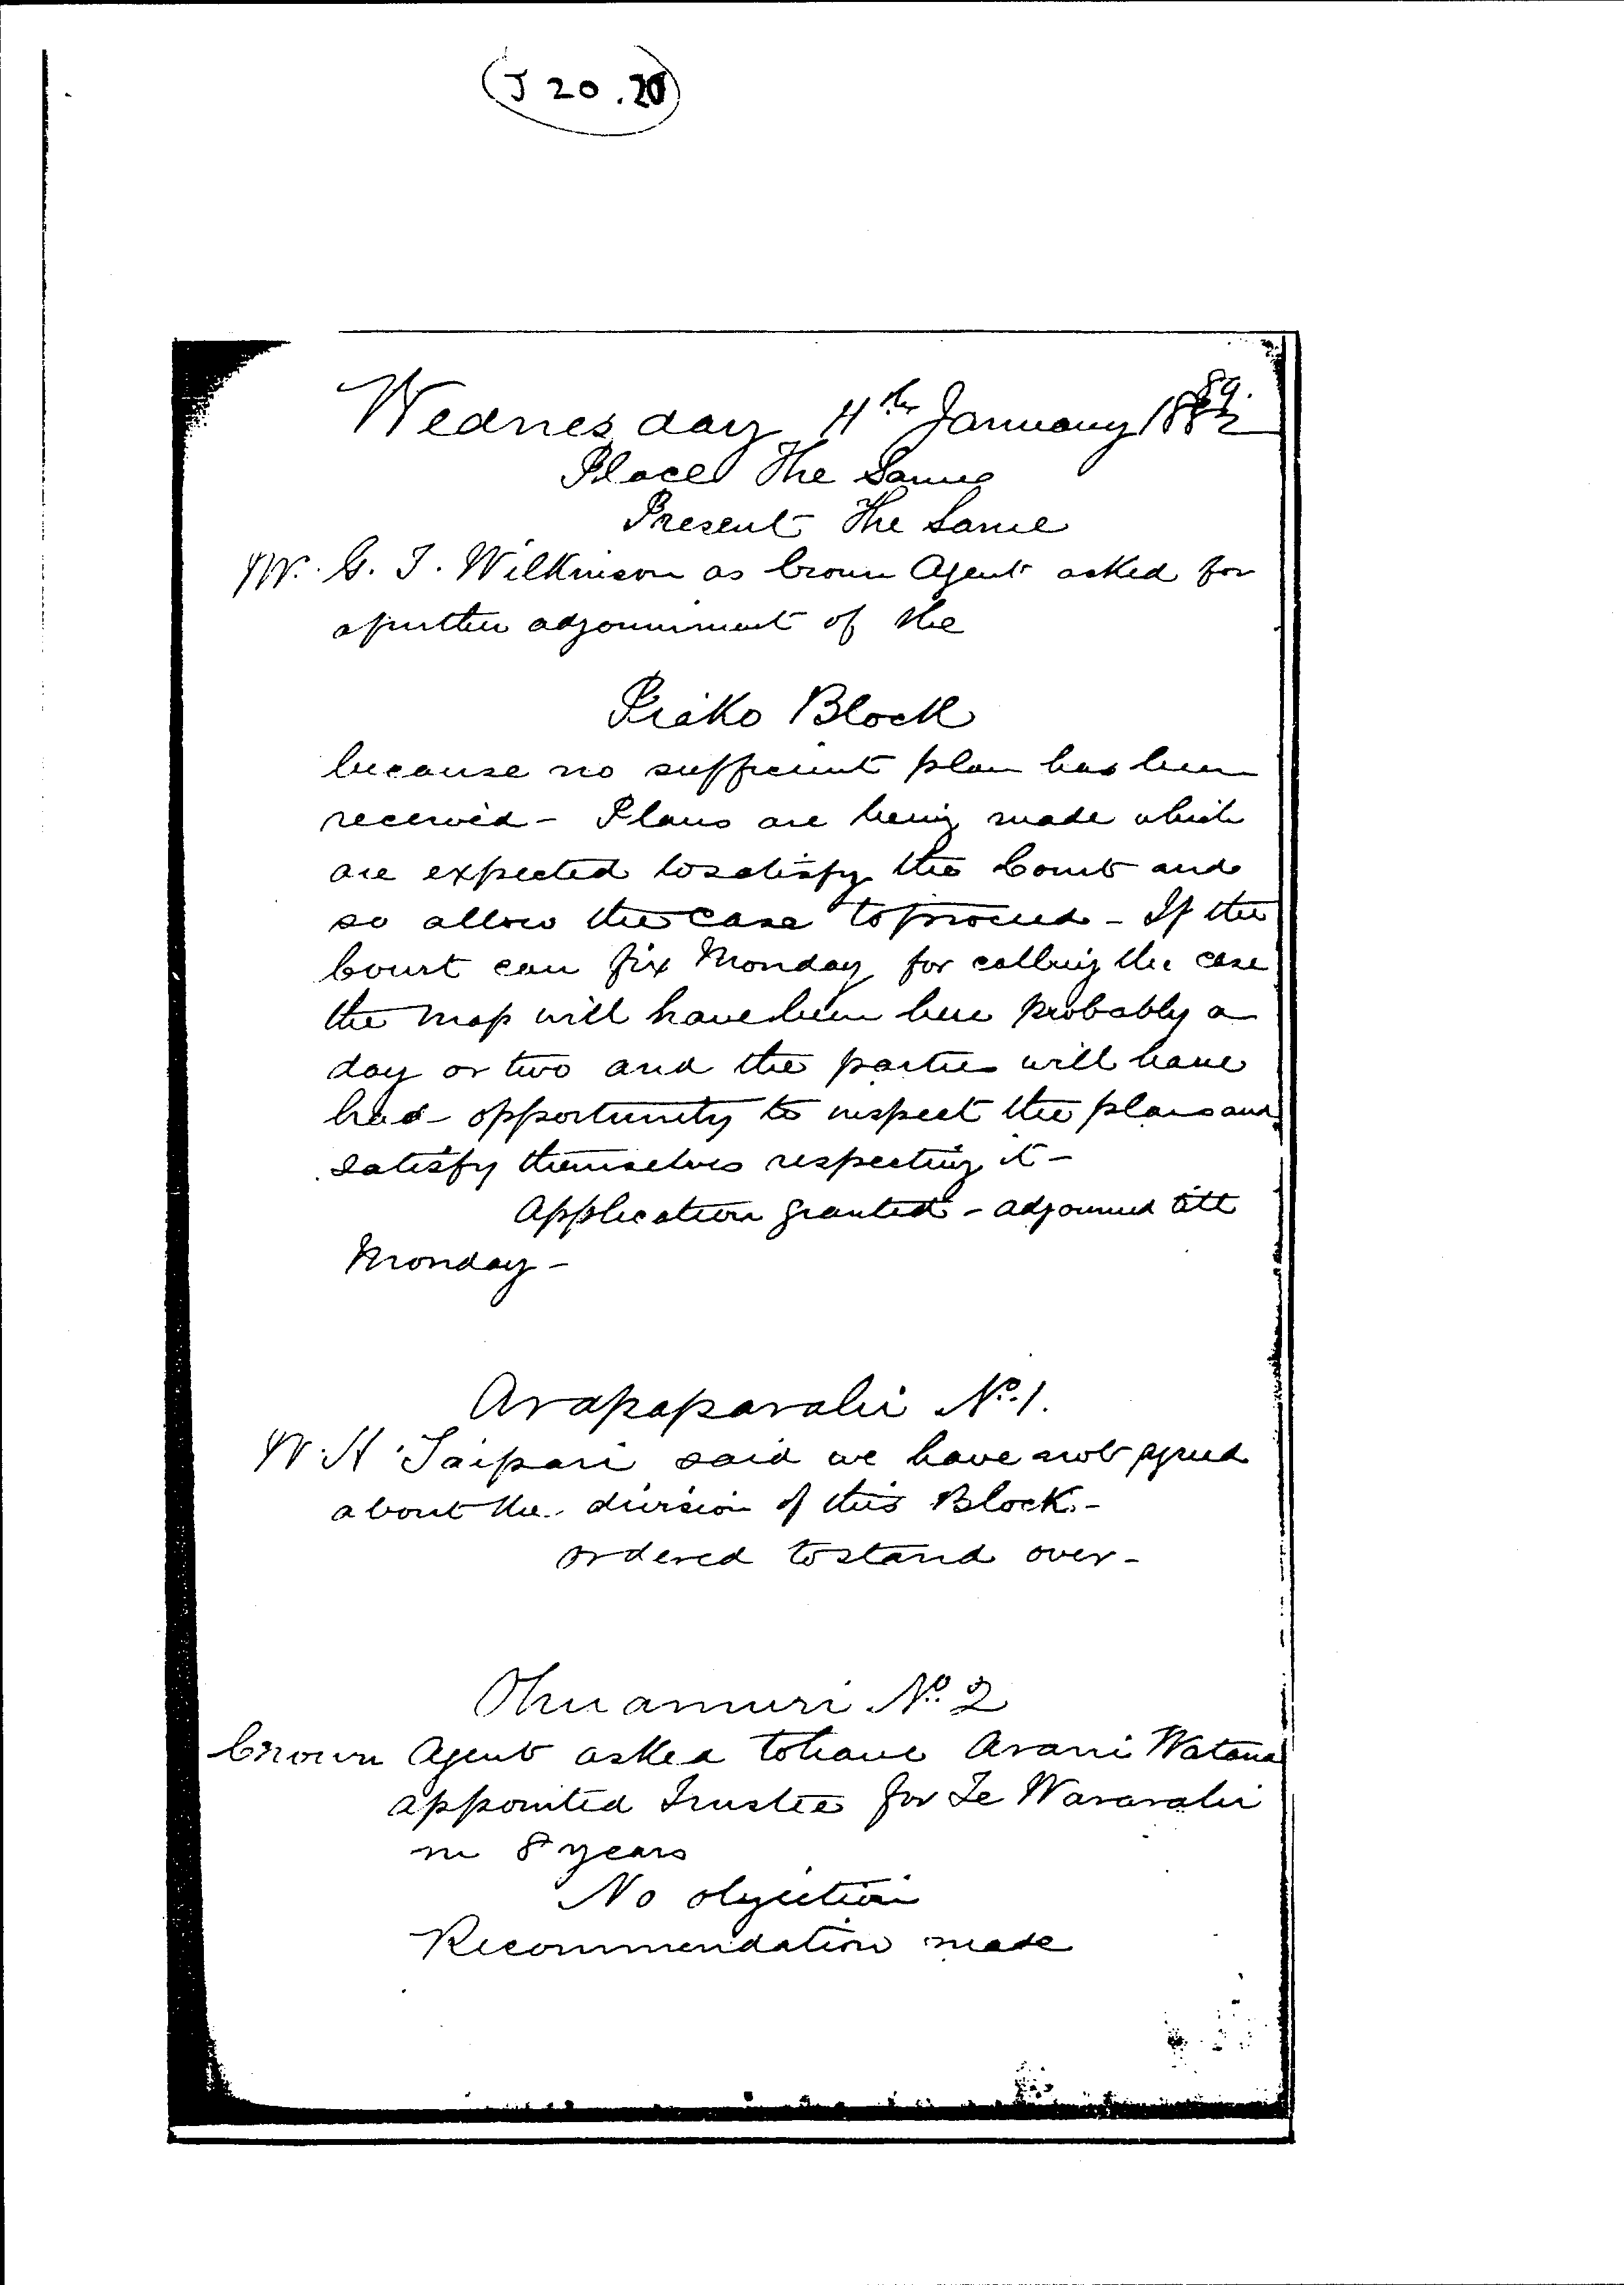 J 20.20
89.
Wednesday 11th January 1882
Place The Same
Present The Same
Mr. G. T. Wilkinson as Crown Agent asked for
a further adjournment of the
Piako Block
because no sufficient plan has been
received - Plans are being made which
are expected to satisfy the Court and
so allow the case to proceed - If the
Court can fix Monday for calling the case
the map will have been here probably a
day or two and the parties will have
had opportunity to inspect the plans and
satisfy themselves respecting it -
Application granted - adjourned till
Monday -
Arapaparahi No. 1.
W. H. Taipari said we have not agreed
about the division of this Block. -
ordered to stand over -
Ohuamuri No. 2
Crown Agent asked to have Arani Watana
appointed Trustee for Te Wararahi
m 8 years
No objection
Recommendation made